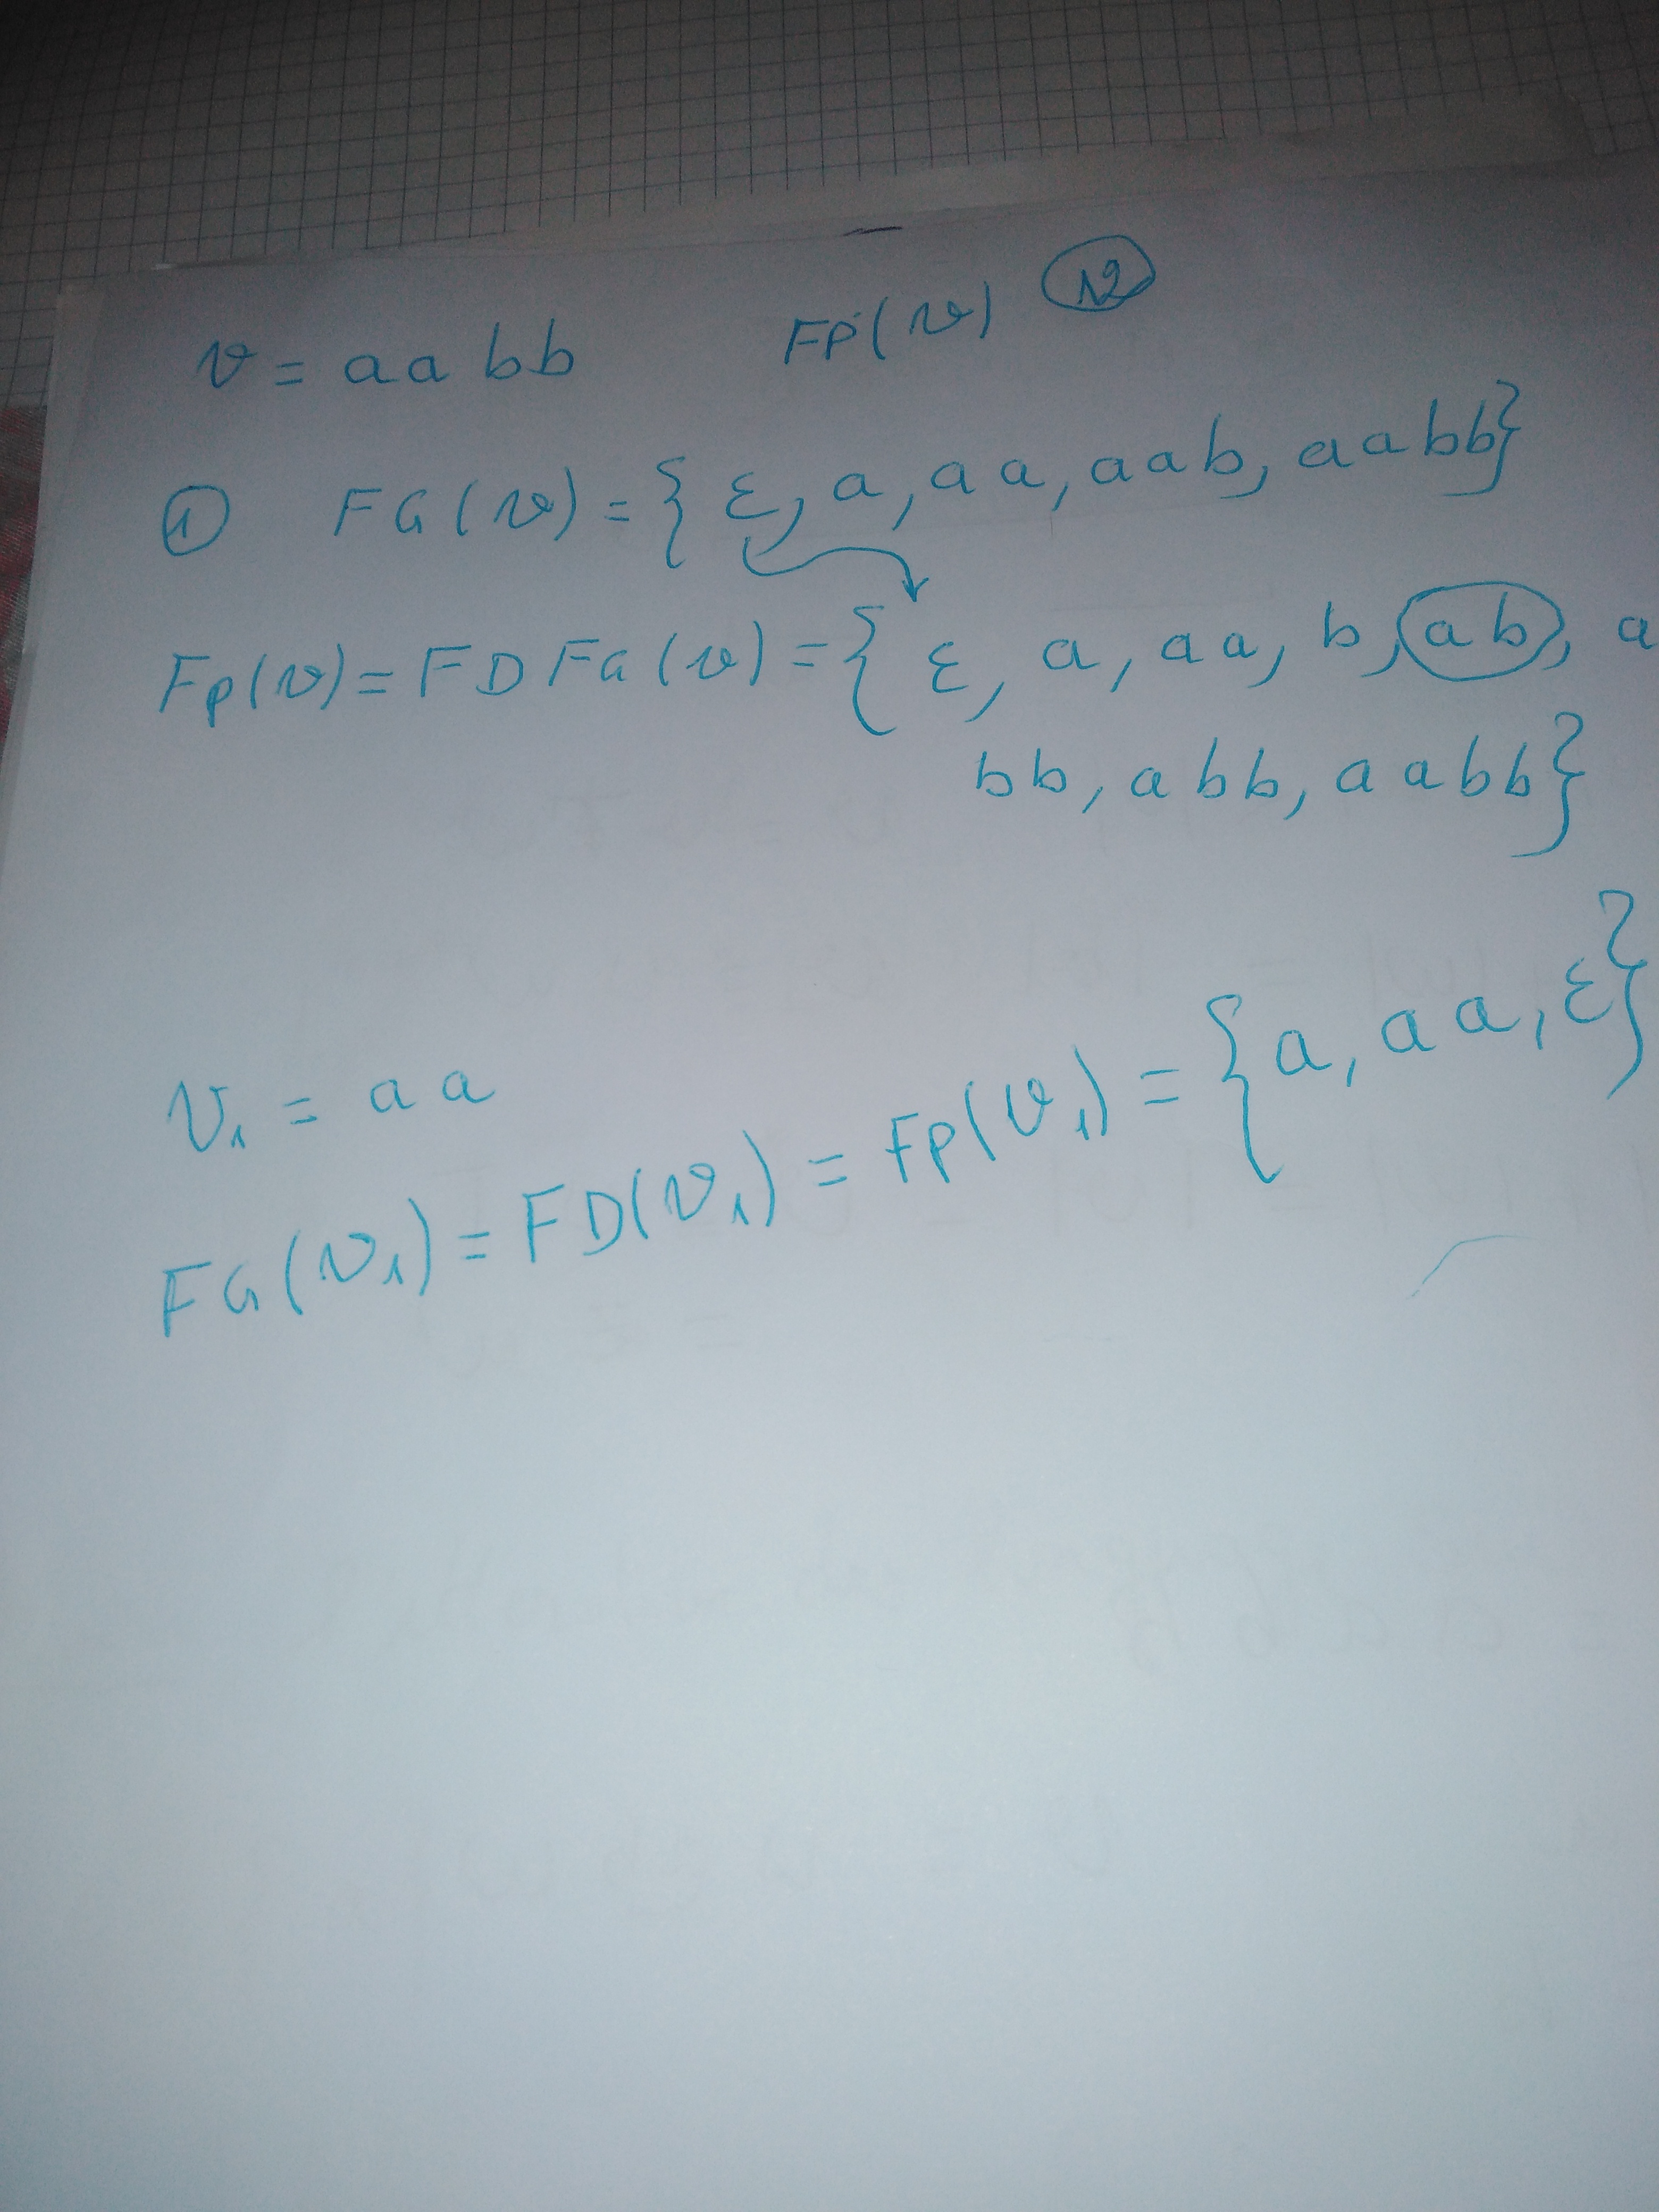 v = aabb FP(v) 12
1 FG(v) = { ε, a, aa, aab, aabb}
Fp(v) = FD FG(v) = { ε, a, aa, b, ab, a
bb, abb, aabb}
v₁ = aa
FG(v₁) = FD(v₁) = FP(v₁) = {a, aa, ε}